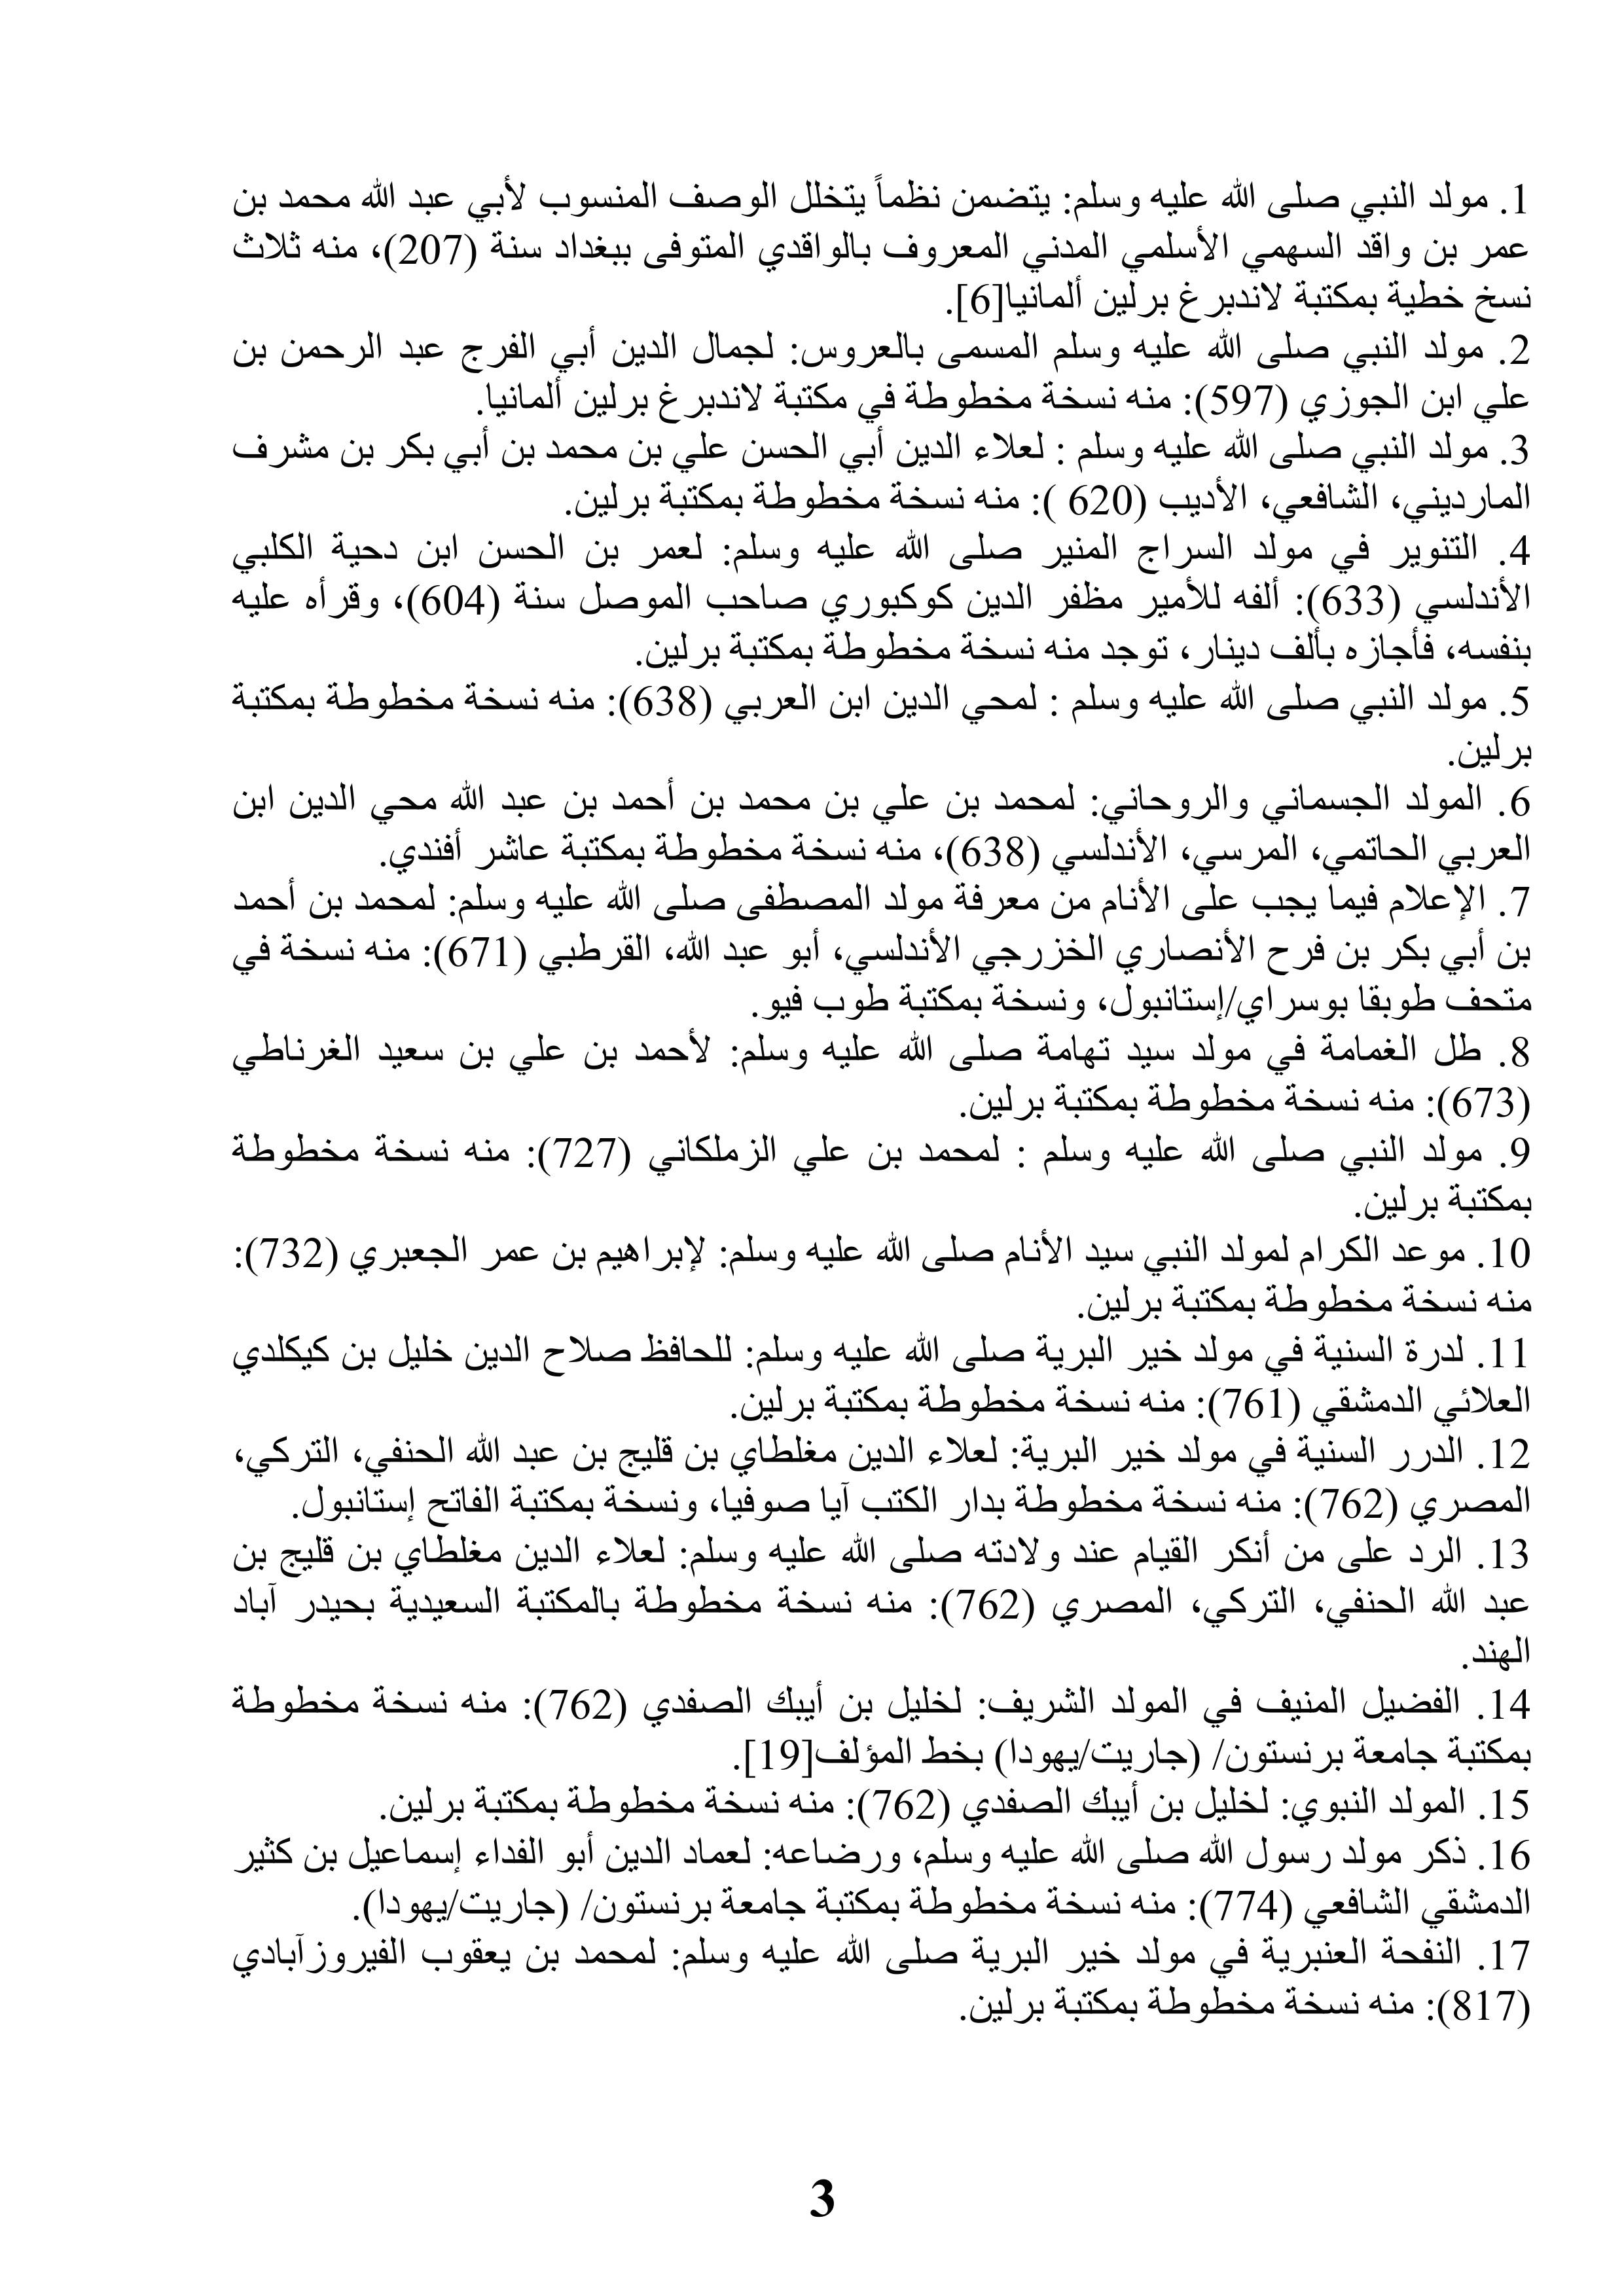 1. مولد النبي صلى الله عليه وسلم: يتضمن نظماً يتخلل الوصف المنسوب لأبي عبد الله محمد بن
عمر بن واقد السهمي الأسلمي المدني المعروف بالواقدي المتوفى ببغداد سنة (207)، منه ثلاث
نسخ خطية بمكتبة لاندبرغ برلين ألمانيا[6].
2. مولد النبي صلى الله عليه وسلم المسمى بالعروس: لجمال الدين أبي الفرج عبد الرحمن بن
علي ابن الجوزي (597): منه نسخة مخطوطة في مكتبة لاندبرغ برلين ألمانيا.
3. مولد النبي صلى الله عليه وسلم : لعلاء الدين أبي الحسن علي بن محمد بن أبي بكر بن مشرف
المارديني، الشافعي، الأديب (620 ): منه نسخة مخطوطة بمكتبة برلين.
4. التنوير في مولد السراج المنير صلى الله عليه وسلم: لعمر بن الحسن ابن دحية الكلبي
الأندلسي (633): ألفه للأمير مظفر الدين كوكبوري صاحب الموصل سنة (604)، وقرأه عليه
بنفسه، فأجازه بألف دينار، توجد منه نسخة مخطوطة بمكتبة برلين.
5. مولد النبي صلى الله عليه وسلم : لمحي الدين ابن العربي (638): منه نسخة مخطوطة بمكتبة
برلين.
6. المولد الجسماني والروحاني: لمحمد بن علي بن محمد بن أحمد بن عبد الله محي الدين ابن
العربي الحاتمي، المرسي، الأندلسي (638)، منه نسخة مخطوطة بمكتبة عاشر أفندي.
7. الإعلام فيما يجب على الأنام من معرفة مولد المصطفى صلى الله عليه وسلم: لمحمد بن أحمد
بن أبي بكر بن فرح الأنصاري الخزرجي الأندلسي، أبو عبد الله، القرطبي (671): منه نسخة في
متحف طوبقا بوسراي/إستانبول، ونسخة بمكتبة طوب فيو.
8. طل الغمامة في مولد سيد تهامة صلى الله عليه وسلم: لأحمد بن علي بن سعيد الغرناطي
(673): منه نسخة مخطوطة بمكتبة برلين.
9. مولد النبي صلى الله عليه وسلم : لمحمد بن علي الزملكاني (727): منه نسخة مخطوطة
بمكتبة برلين.
10. موعد الكرام لمولد النبي سيد الأنام صلى الله عليه وسلم: لإبراهيم بن عمر الجعبري (732):
منه نسخة مخطوطة بمكتبة برلين.
11. لدرة السنية في مولد خير البرية صلى الله عليه وسلم: للحافظ صلاح الدين خليل بن كيكلدي
العلائي الدمشقي (761): منه نسخة مخطوطة بمكتبة برلين.
12. الدرر السنية في مولد خير البرية: لعلاء الدين مغلطاي بن قليج بن عبد الله الحنفي، التركي،
المصري (762): منه نسخة مخطوطة بدار الكتب آيا صوفيا، ونسخة بمكتبة الفاتح إستانبول.
13. الرد على من أنكر القيام عند ولادته صلى الله عليه وسلم: لعلاء الدين مغلطاي بن قليج بن
عبد الله الحنفي، التركي، المصري (762): منه نسخة مخطوطة بالمكتبة السعيدية بحيدر آباد
الهند.
14. الفضيل المنيف في المولد الشريف: لخليل بن أيبك الصفدي (762): منه نسخة مخطوطة
بمكتبة جامعة برنستون/ (جاريت/يهودا) بخط المؤلف[19].
15. المولد النبوي: لخليل بن أيبك الصفدي (762): منه نسخة مخطوطة بمكتبة برلين.
16. ذكر مولد رسول الله صلى الله عليه وسلم، ورضاعه: لعماد الدين أبو الفداء إسماعيل بن كثير
الدمشقي الشافعي (774): منه نسخة مخطوطة بمكتبة جامعة برنستون/ (جاريت/يهودا).
17. النفحة العنبرية في مولد خير البرية صلى الله عليه وسلم: لمحمد بن يعقوب الفيروزآبادي
(817): منه نسخة مخطوطة بمكتبة برلين.
3